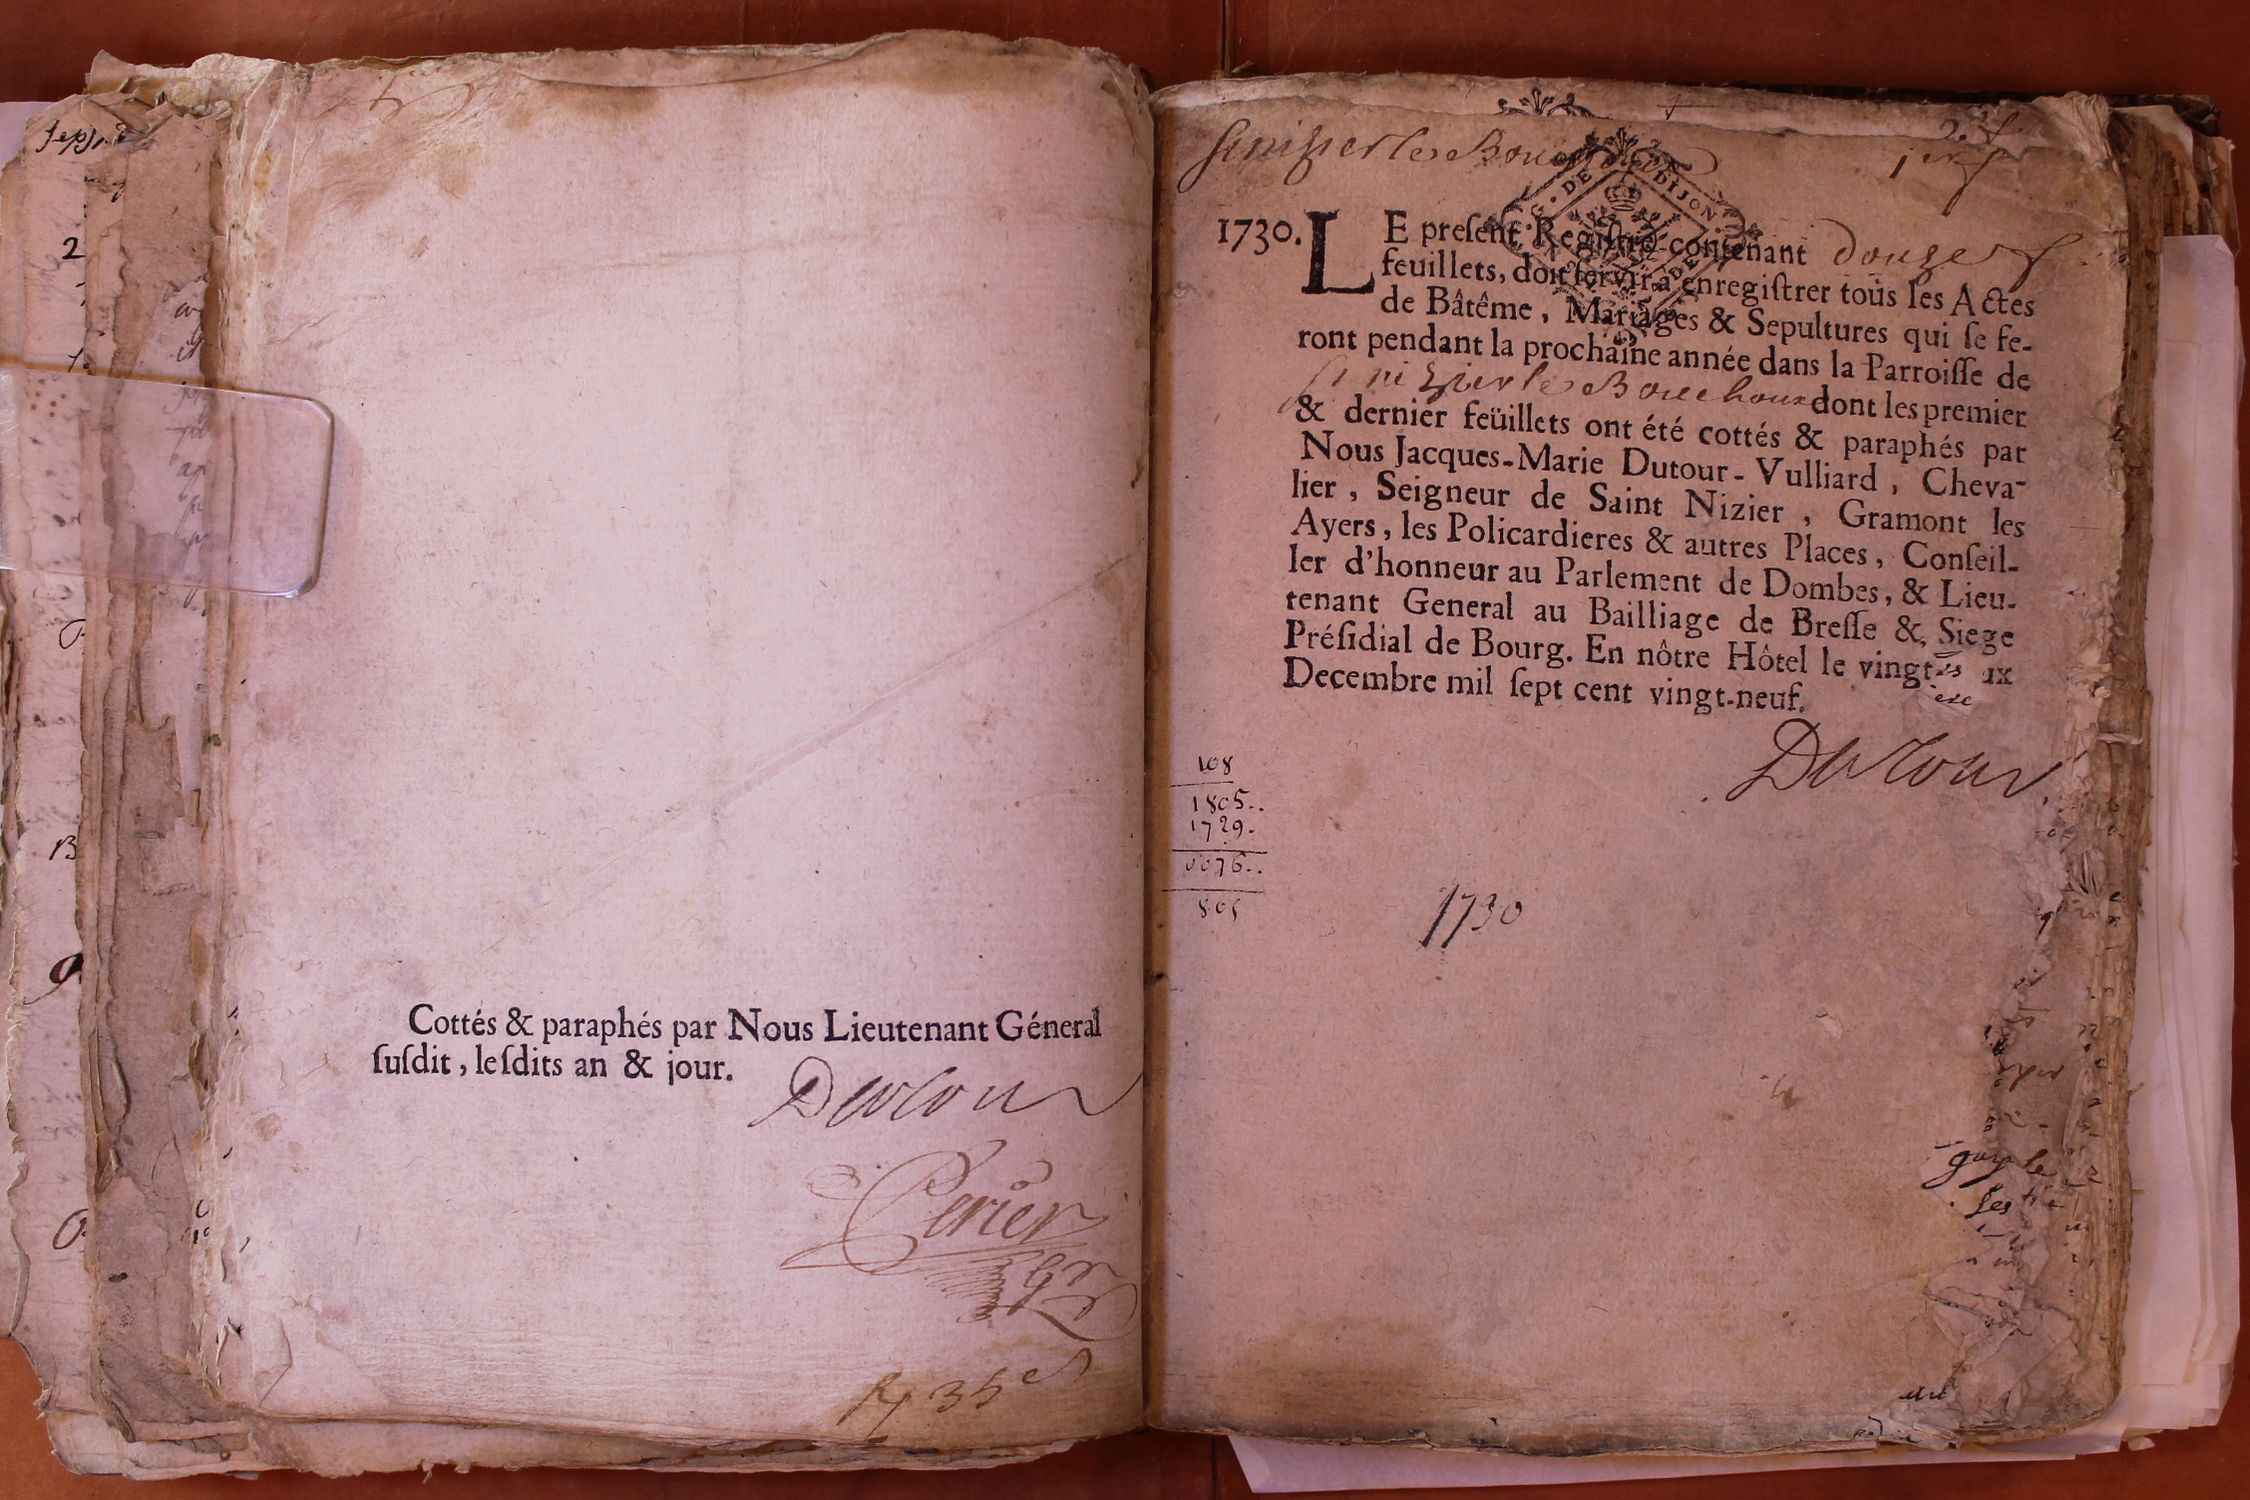 Cottés & paraphés par Nous Lieutenant Géneral
ſuſdit, leſdits an & jour.
Dutour
Perier
St nizier le Bouchoux
1er f
G. DE DIJON
1730. LE preſent Regiſtre contenant douze f
feuillets, doit ſervir à enregiſtrer tous les Actes
de Bâtême, Mariages & Sepultures qui ſe fe-
ront pendant la prochaine année dans la Parroiſſe de
St nizier le Bouchoux dont les premier
& dernier feüillets ont été cottés & paraphés par
Nous Jacques-Marie Dutour-Vulliard, Cheva-
lier, Seigneur de Saint Nizier, Gramont les
Ayers, les Policardieres & autres Places, Conſeil-
ler d'honneur au Parlement de Dombes, & Lieu-
tenant General au Bailliage de Breſſe & Siege
Préſidial de Bourg. En nôtre Hôtel le vingt
Decembre mil ſept cent vingt-neuf.
Dutour
108
1805..
1729.
0076..
1730